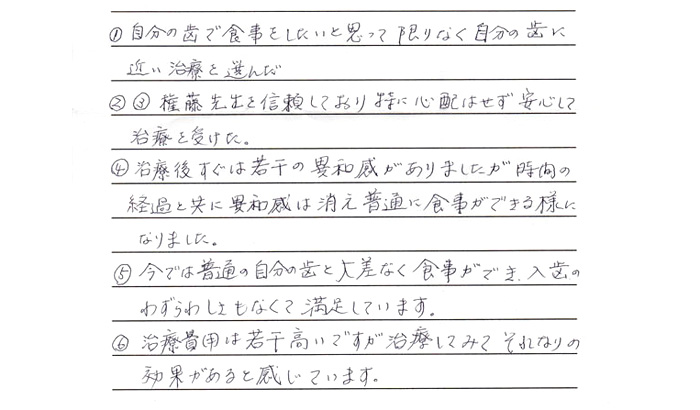 ① 自分の歯で食事をしたいと思って限りなく自分の歯に
近い治療を選んだ
②③ 権藤先生を信頼しており特に心配はせず安心して
治療を受けた。
④ 治療後すぐは若干の異和感がありましたが時間の
経過と共に異和感は消え普通に食事ができる様に
なりました。
⑤ 今では普通の自分の歯と大差なく食事ができ、入歯の
わずらわしさもなくて満足しています。
⑥ 治療費用は若干高いですが治療してみてそれなりの
効果があると感じています。